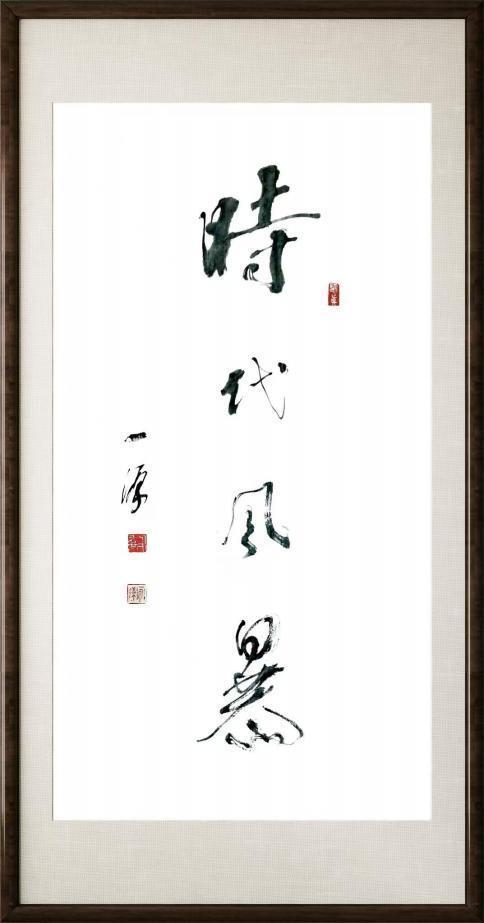 時代风暴
一源